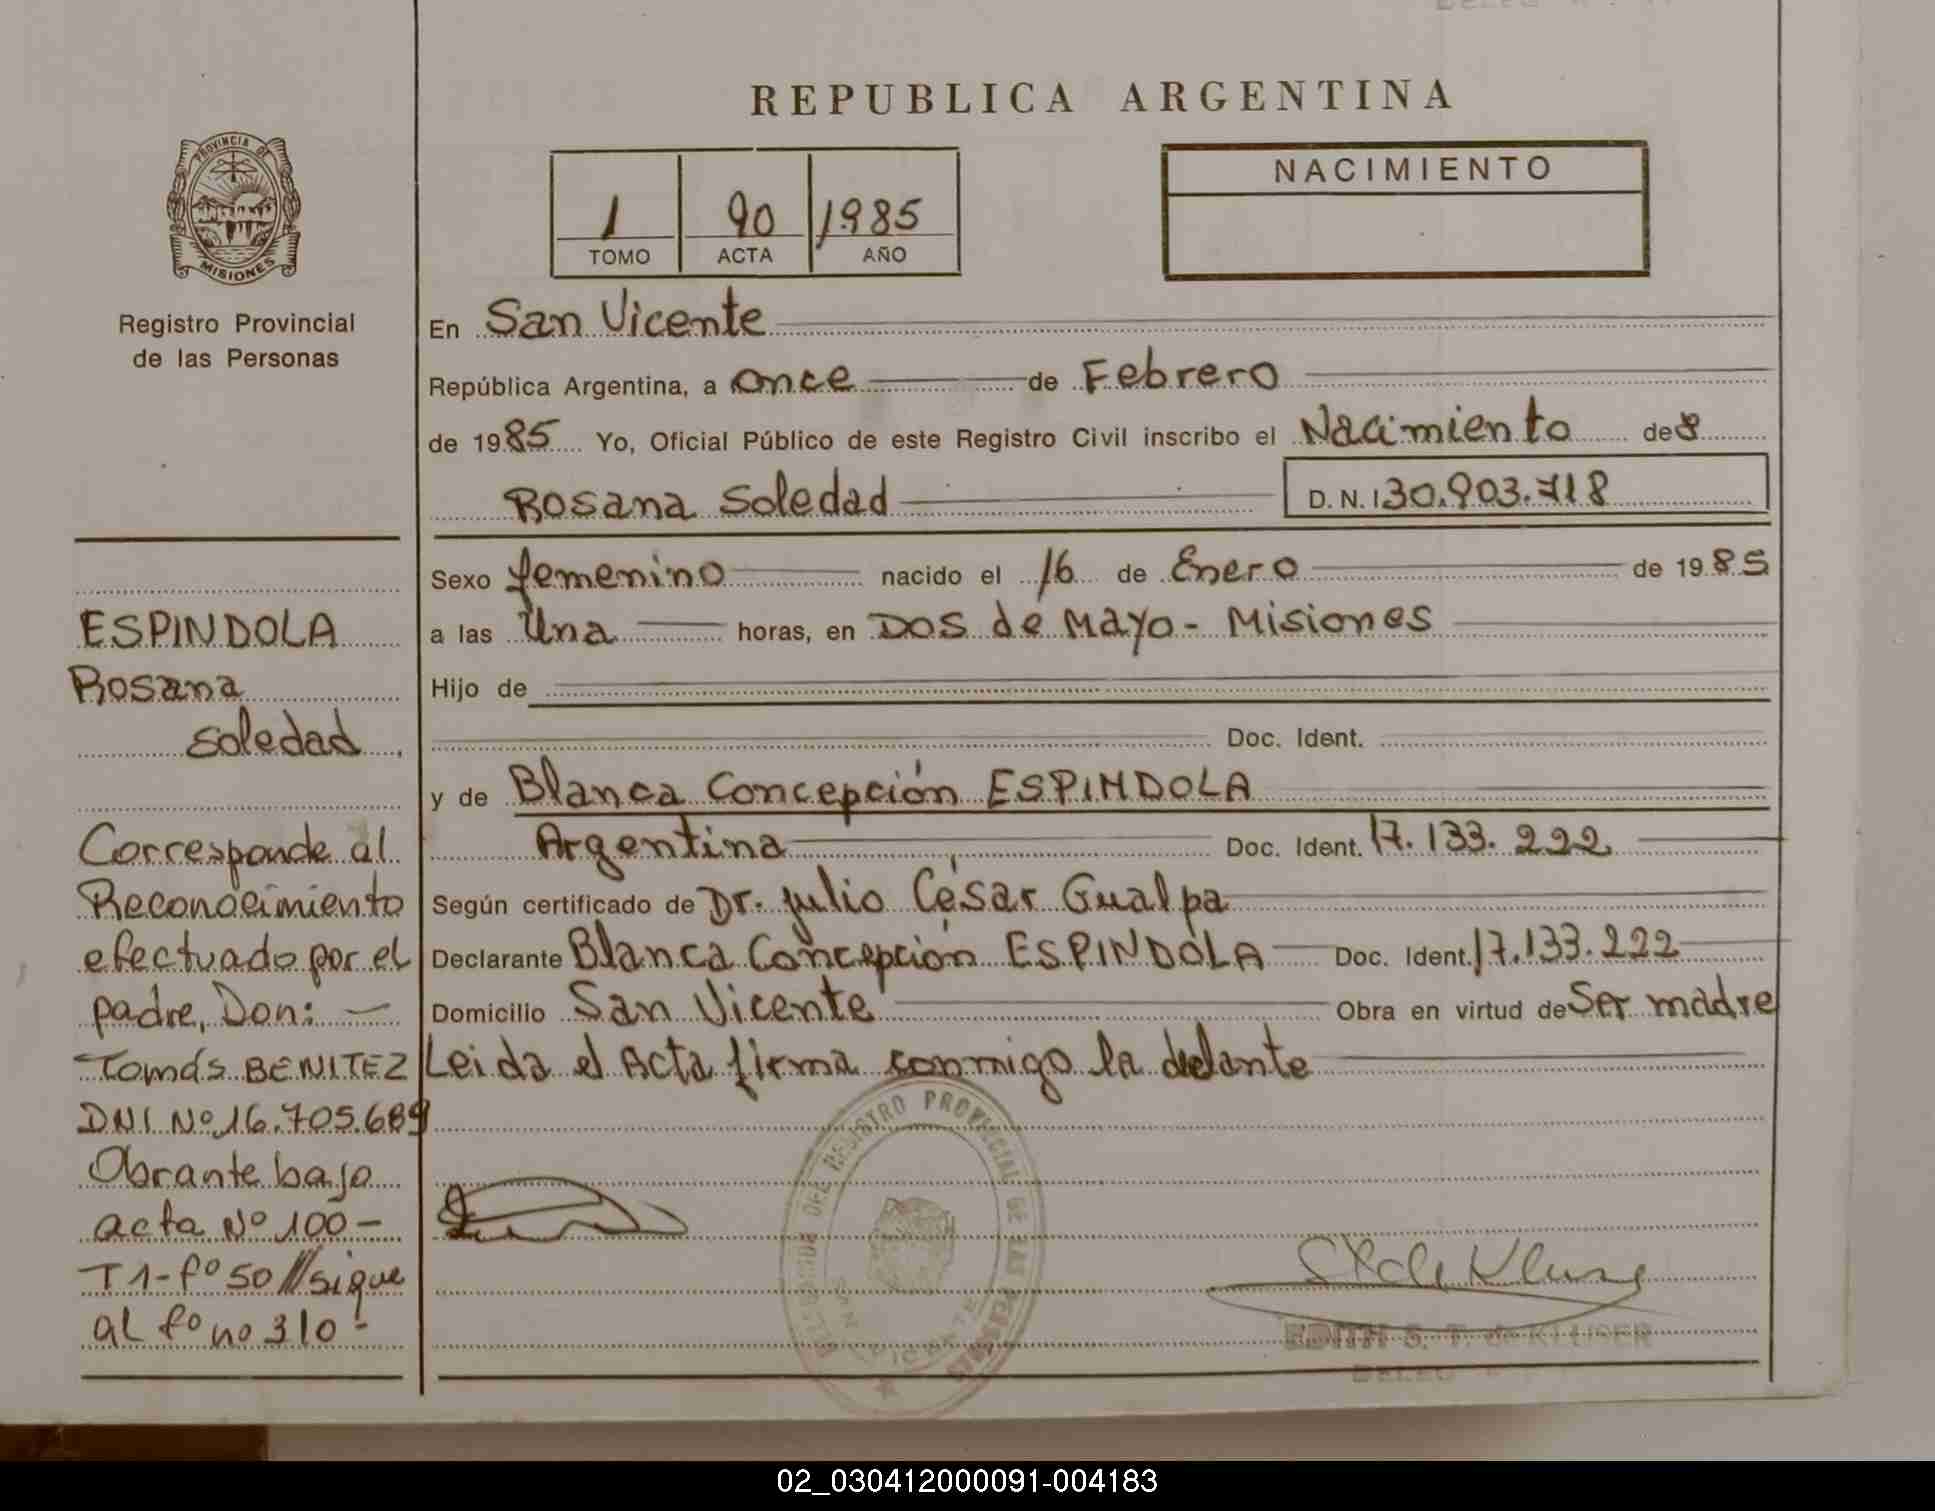 REPUBLICA ARGENTINA
PROVINCIA DE
MISIONES
Registro Provincial
de las Personas
1 90 1985
TOMO ACTA AÑO
NACIMIENTO
En San Vicente
República Argentina, a once de Febrero
de 1985 Yo, Oficial Público de este Registro Civil inscribo el Nacimiento de
Rosana Soledad D.N.I 30.903.718
Sexo femenino nacido el 16 de Enero de 1985
a las Una horas, en DOS de Mayo - Misiones
Hijo de
Doc. Ident.
y de Blanca Concepción ESPINDOLA
Argentina Doc. Ident. 17.133.222
Según certificado de Dr. Julio César Gualpa
Declarante Blanca Concepción ESPINDOLA Doc. Ident. 17.133.222
Domicilio San Vicente Obra en virtud de Ser madre
Leida el Acta firma conmigo la delante
ESPINDOLA
Rosana
Soledad
Corresponde al
Reconocimiento
efectuado por el
padre, Don: —
Tomás BENITEZ
DNI Nº 16.705.689
Obrante bajo
acta Nº 100 -
T 1 - fº 50 // sigue
al fº nº 310 -
DEL REGISTRO PROVINCIAL DE LAS
SAN VICENTE
EDITH S. T. de KLUSER
02_030412000091-004183